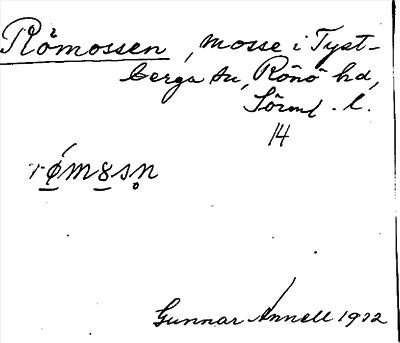 Römossen, mosse i Tyst-
berga sn, Rönö hd,
Sörml. l.
14
rǿm8sn̥
Gunnar Annell 1922